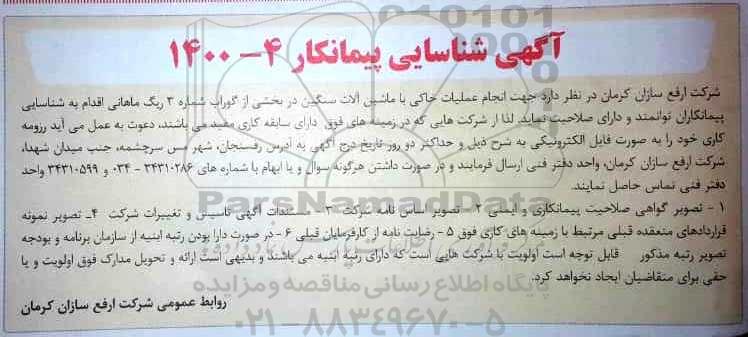 آگهی شناسایی پیمانکار ۴– ۱۴۰۰
شرکت ارفع سازان کرمان در نظر دارد جهت انجام عملیات خاکی با ماشین آلات سنگین در بخشی از گوراب شماره ۲ ریگ ماهانی اقدام به شناسایی
پیمانکاران توانمند و دارای صلاحیت نماید. لذا از شرکت هایی که در زمینه های فوق دارای سابقه کاری مفید می باشند، دعوت به عمل می آید رزومه
کاری خود را به صورت فایل الکترونیکی به شرح ذیل و حداکثر دو روز تاریخ درج آگهی به آدرس رفسنجان، شهر مس سرچشمه، جنب میدان شهدا،
شرکت ارفع سازان کرمان، واحد دفتر فنی ارسال فرمایند و در صورت داشتن هرگونه سوال و یا ابهام با شماره های ۳۴۳۱۰۲۸۶ – ۰۳۴ و ۳۴۳۱۰۵۹۹ واحد
دفتر فنی تماس حاصل نمایند.
۱ - تصویر گواهی صلاحیت پیمانکاری و ایمنی ۲ – تصویر اساس نامه شرکت ۳ – مستندات آگهی تاسیس و تغییرات شرکت ۴– تصویر نمونه
قراردادهای منعقده قبلی مرتبط با زمینه های کاری فوق ۵ - رضایت نامه از کارفرمایان قبلی ۶ - در صورت دارا بودن رتبه ابنیه از سازمان برنامه و بودجه
تصویر رتبه مذکور قابل توجه است اولویت با شرکت هایی است که دارای رتبه ابنیه می باشند و بدیهی است ارائه و تحویل مدارک فوق اولویت و یا
حقی برای متقاضیان ایجاد نخواهد کرد.
روابط عمومی شرکت ارفع سازان کرمان
ParsNamadData
پایگاه اطلاع رسانی مناقصه و مزایده
۰۲۱–۸۸۳۴۹۶۷۰–۵